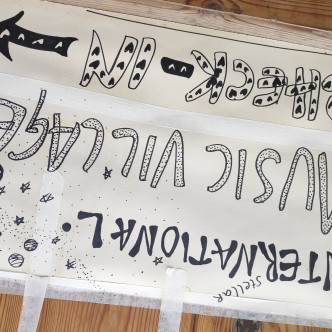 stellar
INTERNATIONAL
MUSIC VILLAGE
CHECK-IN